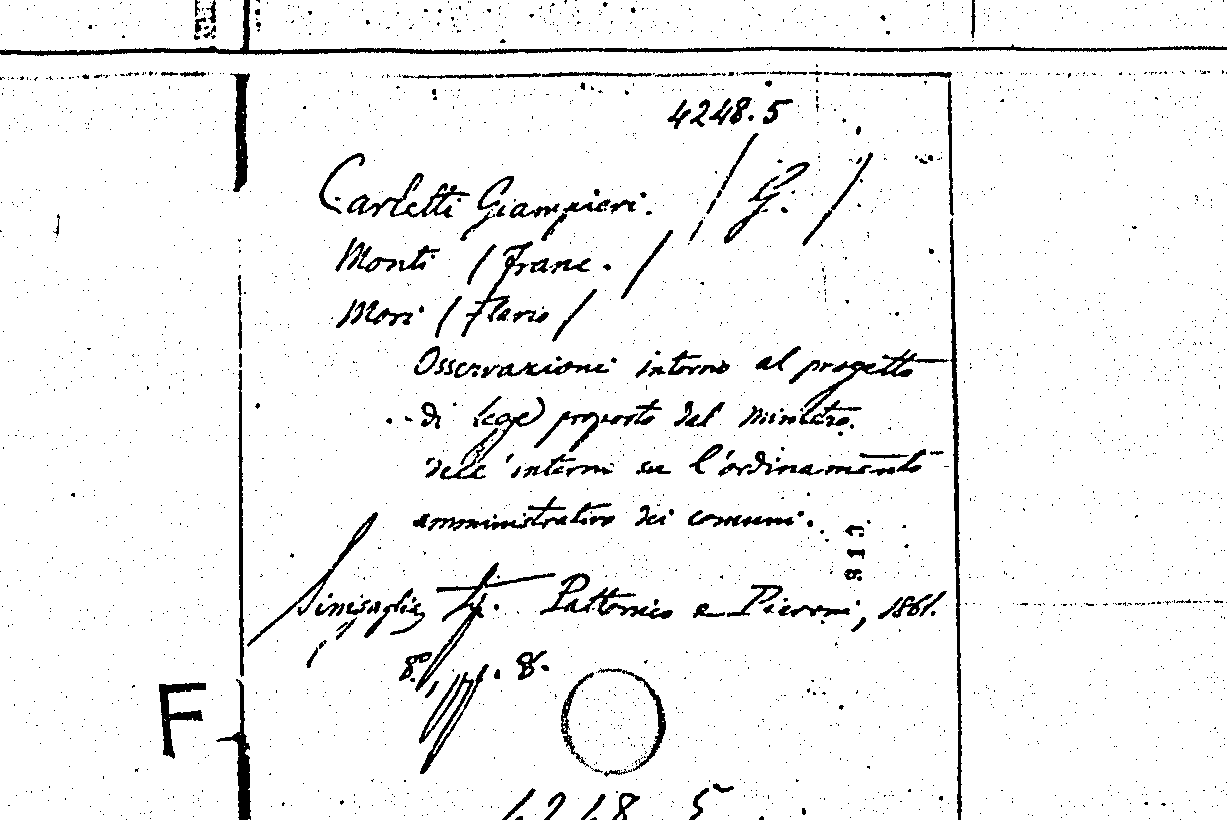 4248.5
Carletti Giampieri. (G.)
Monti (Franc.)
Mori (Flavio)
Osservazioni intorno al progetto
di legge proposto dal ministro
dell'interni su l'ordinamento
amministrativo dei comuni.
813
Sinigaglia, Tip. Pattonico e Pieroni, 1861.
8º, pp. 8.
F
4248.5